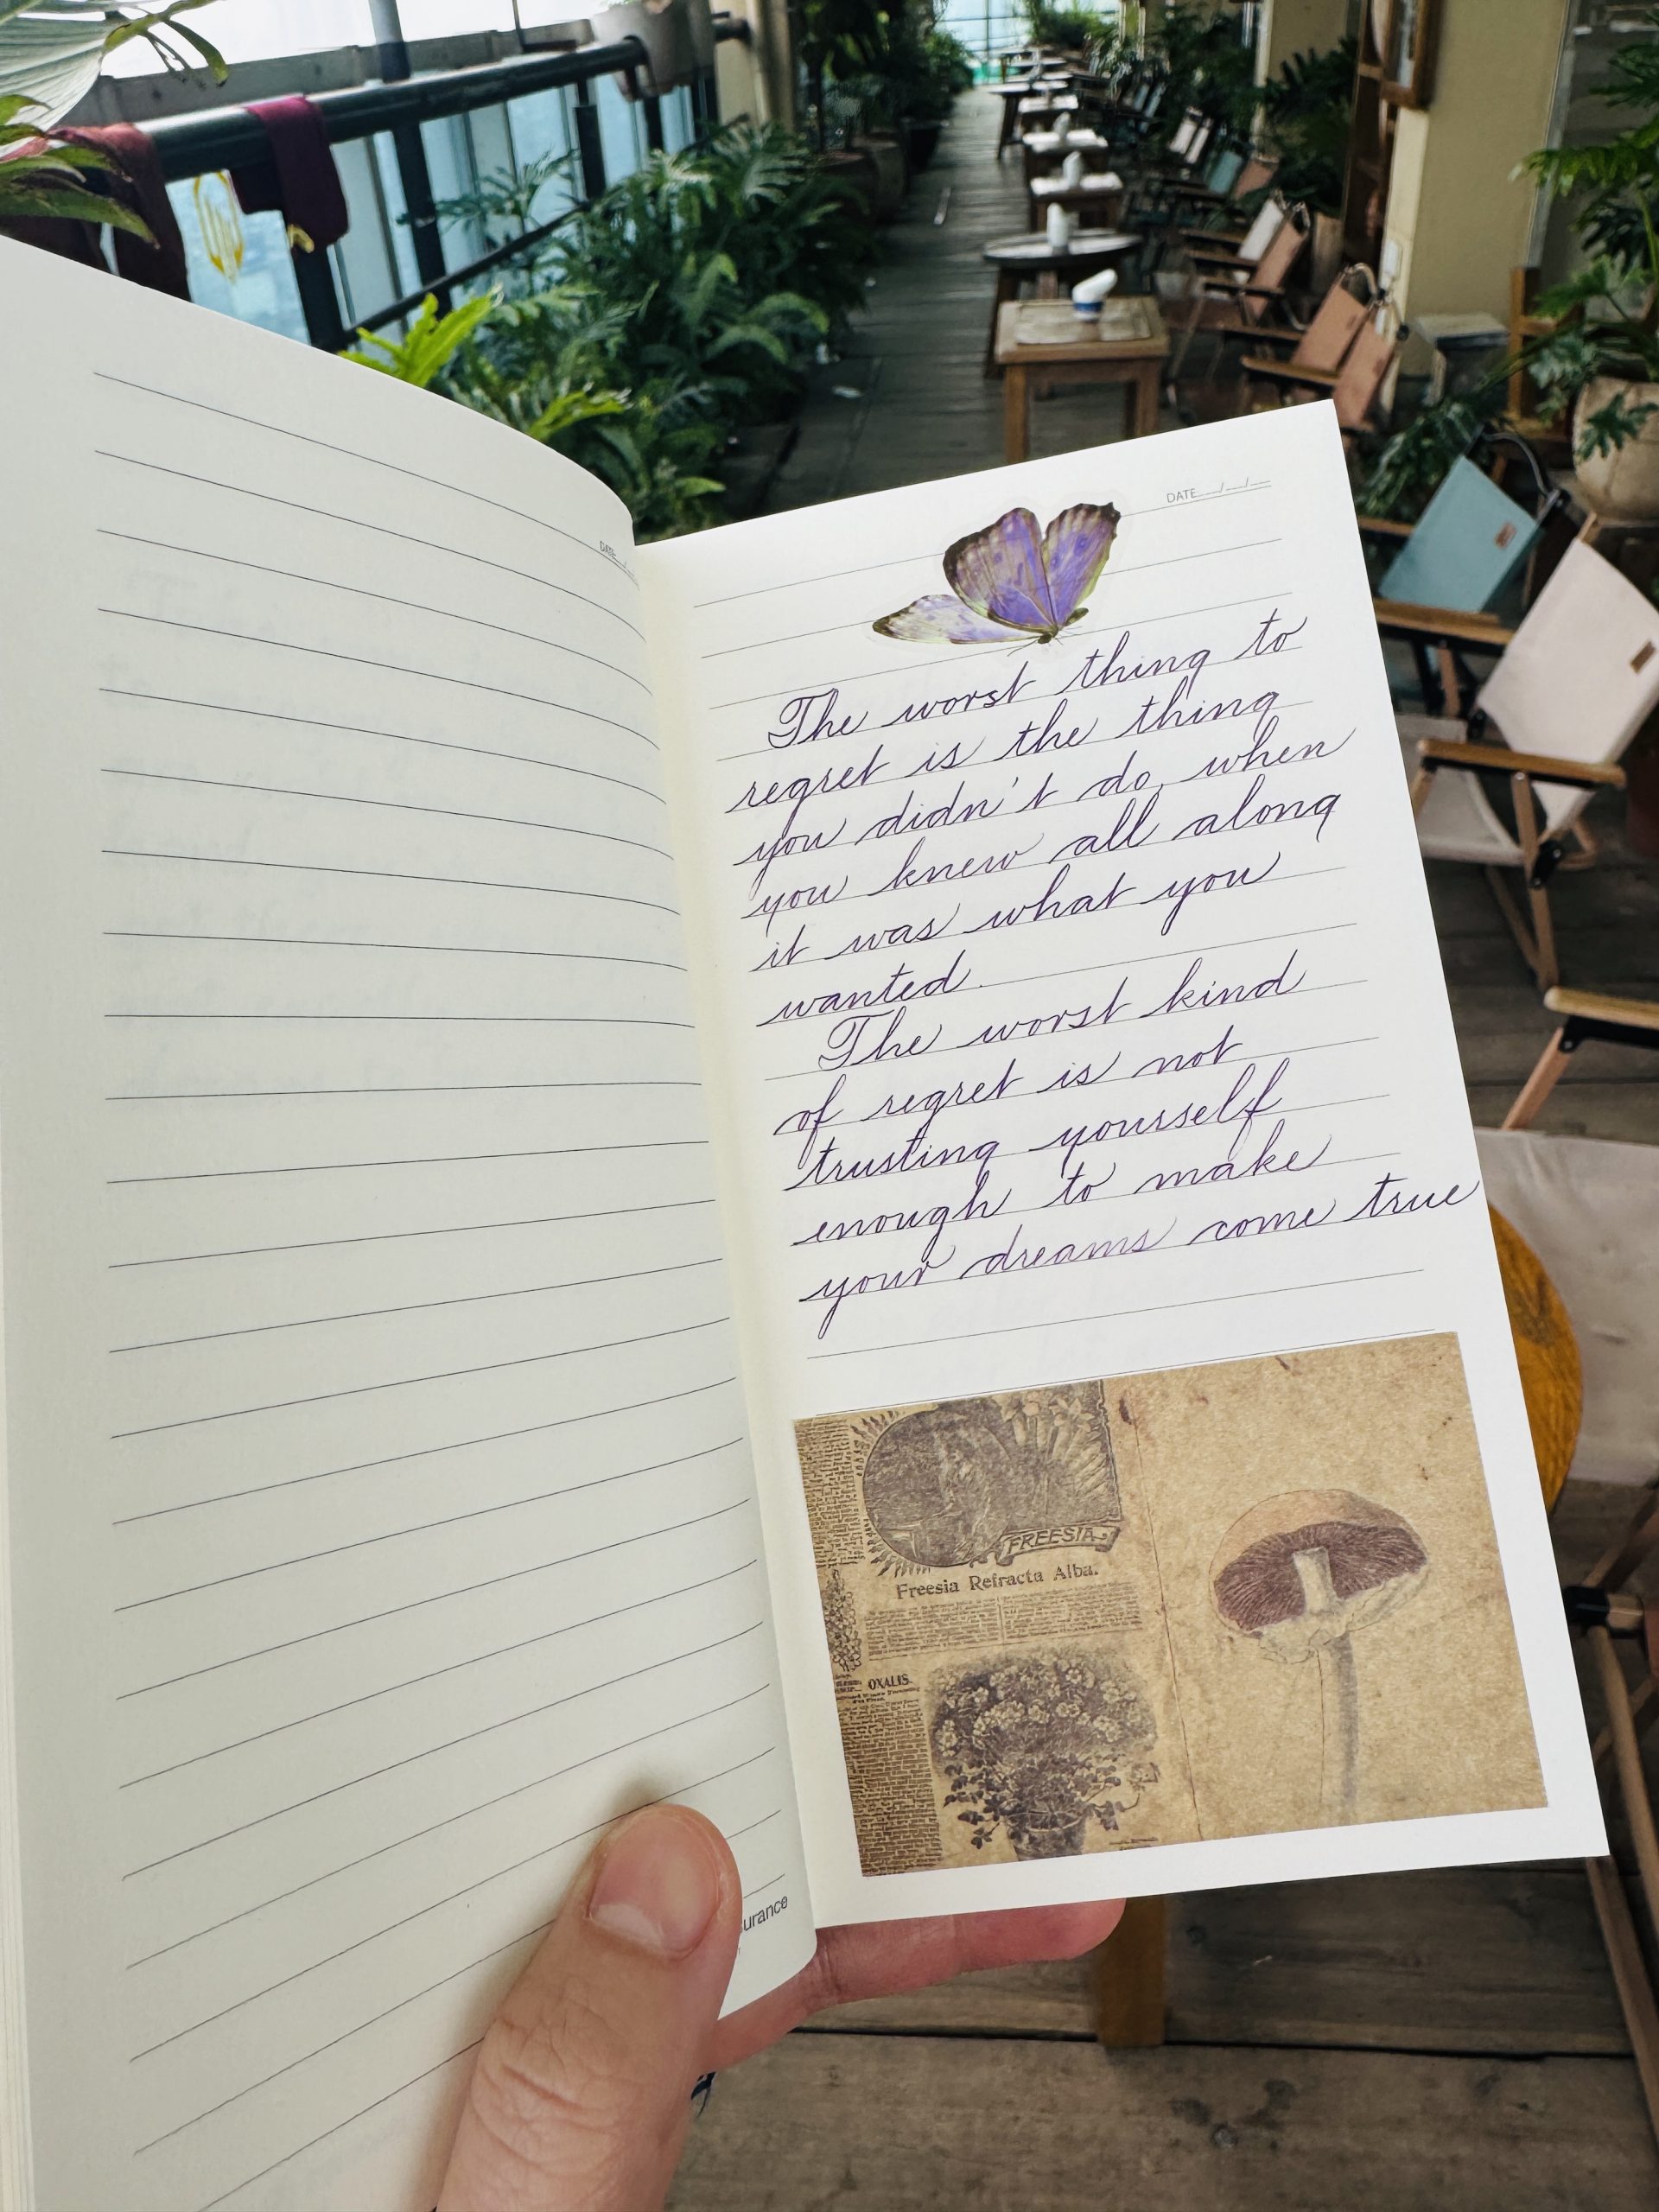 DATE
DATE
The worst thing to
regret is the thing
you didn't do, when
you knew all along
it was what you
wanted.
The worst kind
of regret is not
trusting yourself
enough to make
your dreams come true
FREESIA
Freesia Refracta Alba.
OXALIS.
urance